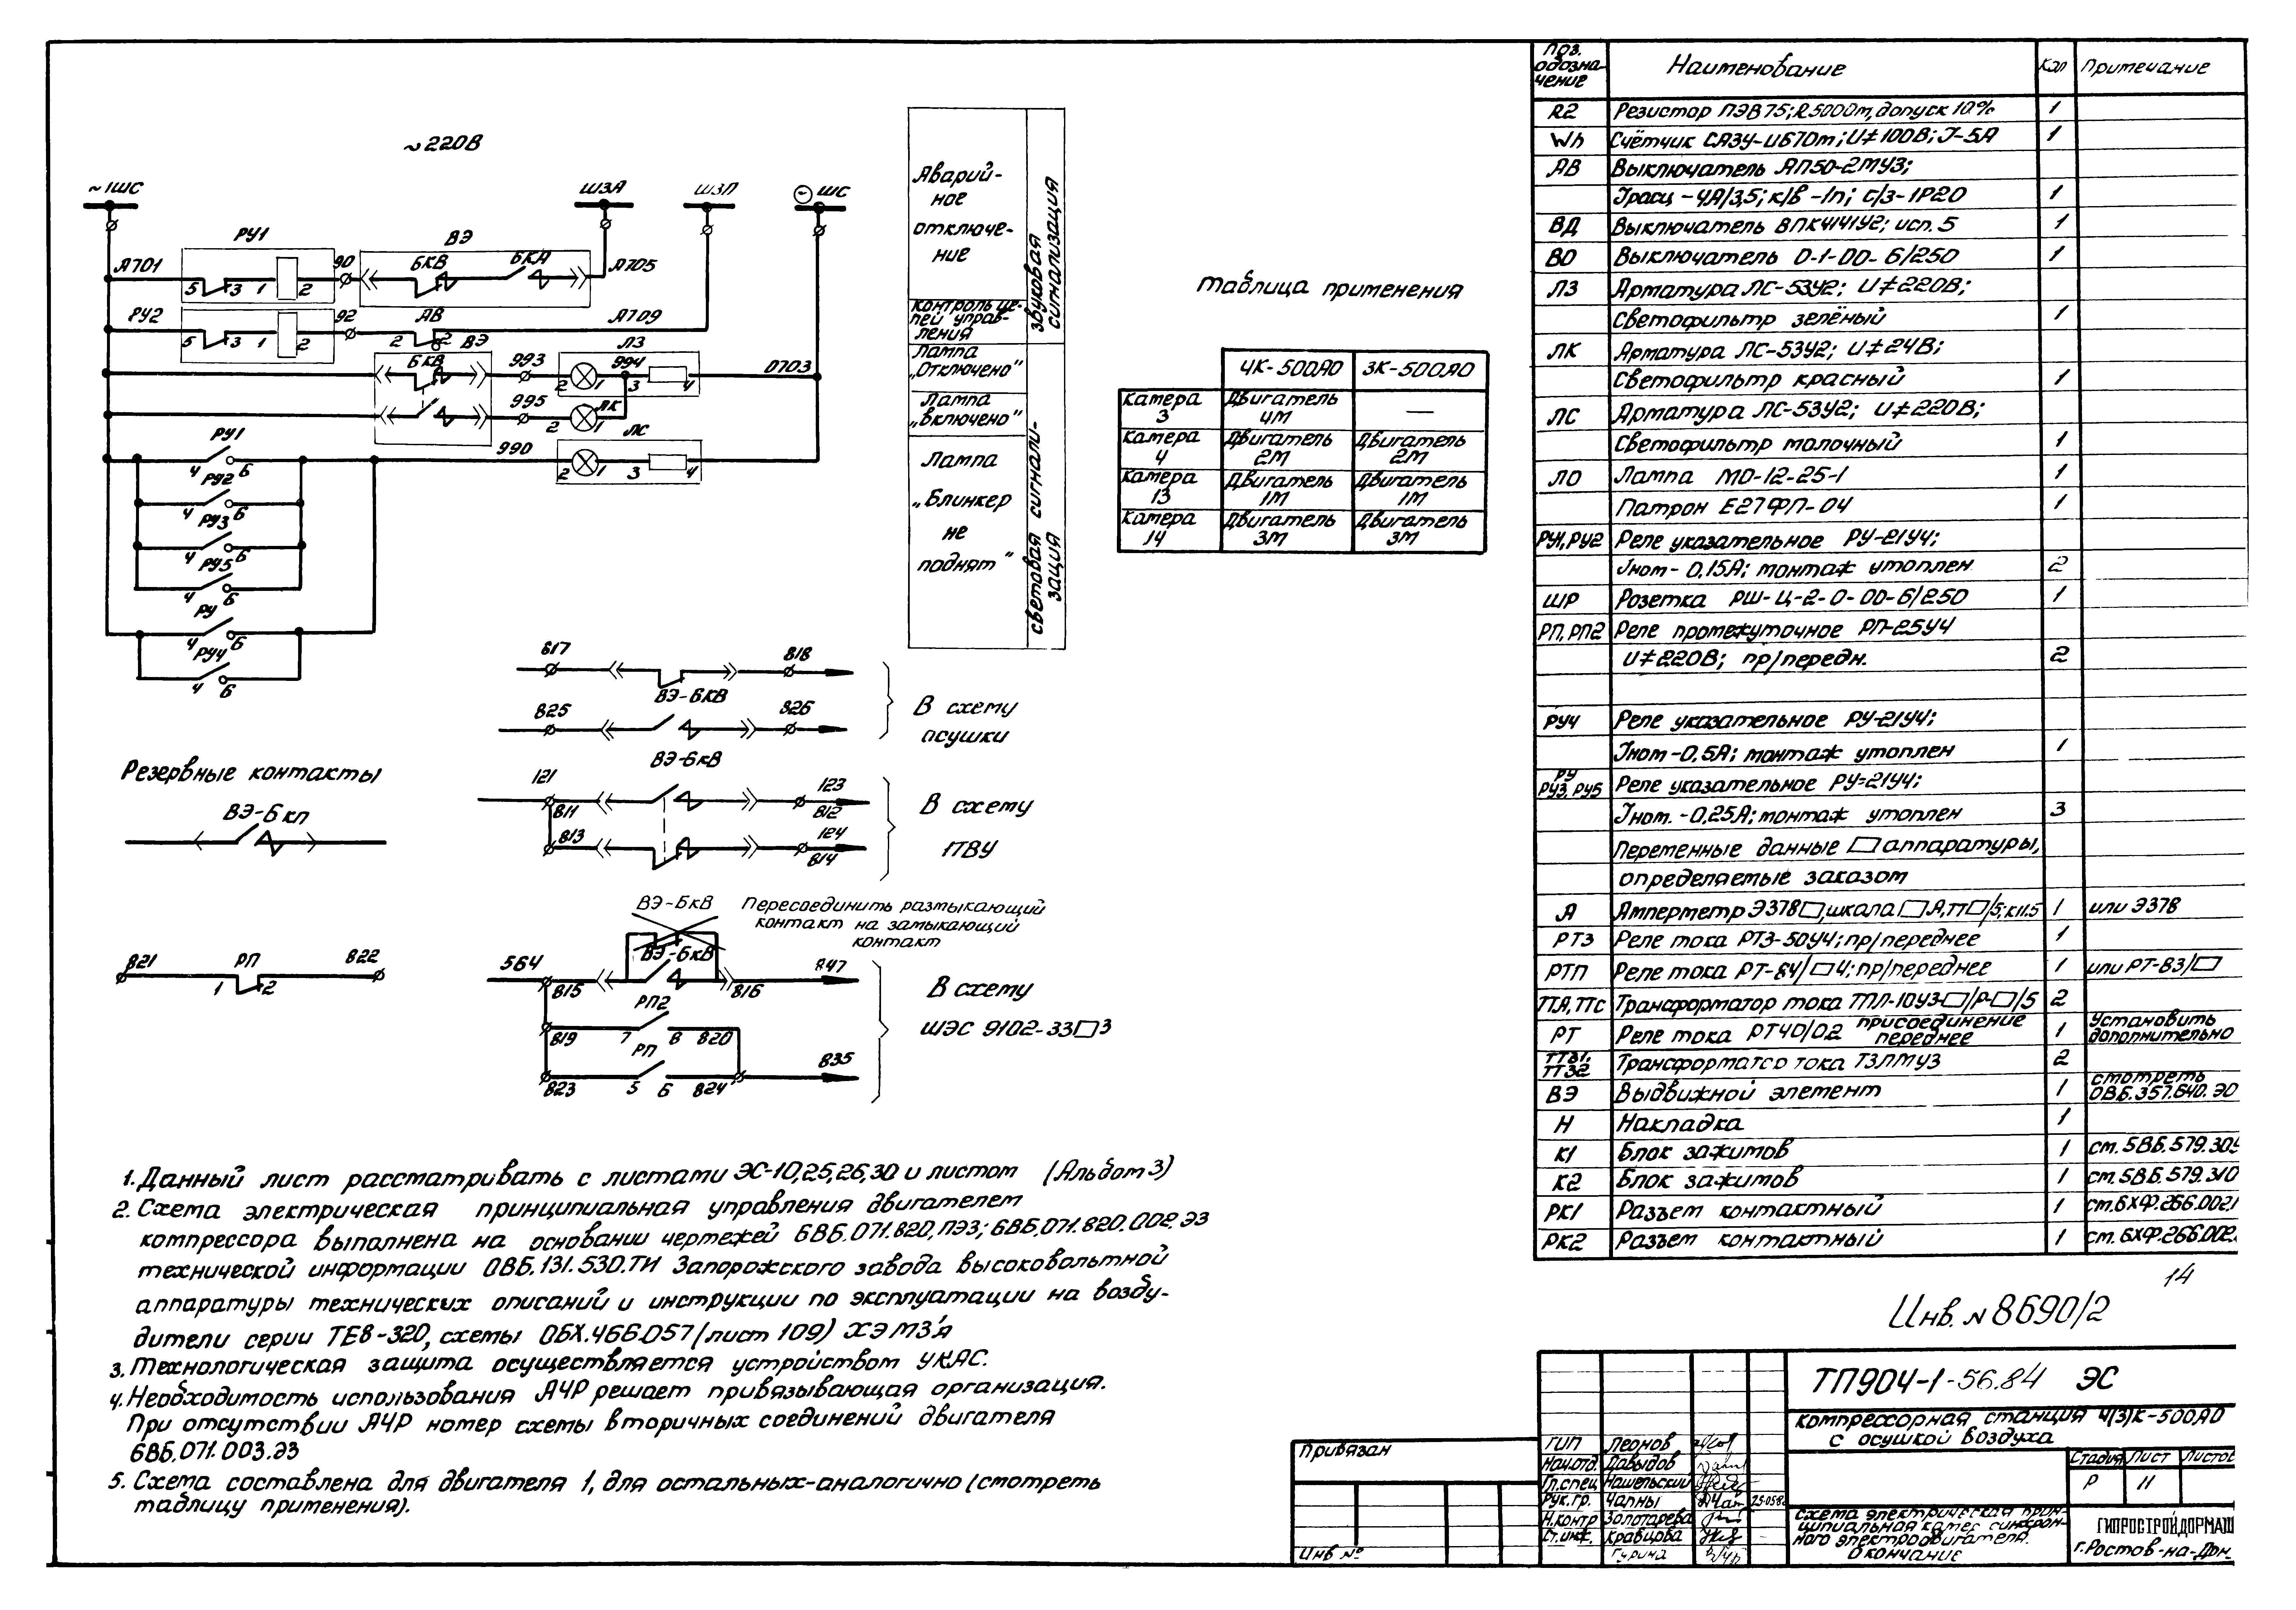 ~220В
~1ШС
ШЗА
ШЗП
ШС
РУ1
ВЭ
А701
5
3
1
2
90
БКВ
БКА
А705
РУ2
5
3
1
2
92
АВ
2
А709
ВЭ
БКВ
993
2
1
994
ЛЗ
3
4
0703
995
2
1
ЛК
990
ЛС
2
1
3
4
РУ1
4 6
РУ2
4 6
РУ3
4 6
РУ5
4 6
РУ
4 6
РУ4
4 6
Аварий-
ное
отключе-
ние
контроль це-
пей управ-
ления
Лампа
„Отключено"
Лампа
„Включено"
Лампа
„Блинкер
не
поднят"
звуковая
сигнализация
световая сигнали-
зация
817
818
ВЭ-БКВ
825
826
В схему
осушки
ВЭ-БкВ
121
123
811
812
813
124
814
В схему
1ТВУ
Резервные контакты
ВЭ-Бкп
ВЭ-БкВ
Пересоединить размыкающий
контакт на замыкающий
контакт
ВЭ-БкВ
821
РП
822
1
2
564
847
815
816
РП2
819
7
8
820
РП
835
823
5
6
824
В схему
ШЭС 9102-33□3
Таблица применения
4К-500АО 3К-500АО
Камера 3 Двигатель 4М —
Камера 4 Двигатель 2М Двигатель 2М
Камера 13 Двигатель 1М Двигатель 1М
Камера 14 Двигатель 3М Двигатель 3М
1. Данный лист рассматривать с листами ЭС-10,25,26,30 и листом (Альбом 3)
2. Схема электрическая принципиальная управления двигателем
компрессора выполнена на основании чертежей 6ВБ.071.820.ПЭ3; 6ВБ.071.820.002.Э3
технической информации 0ВБ.131.530.ТИ Запорожского завода высоковольтной
аппаратуры технических описаний и инструкции по эксплуатации на возбу-
дители серии ТЕ8-320, схемы 0БХ.466.057 (лист 109) ХЭМЗ'я
3. Технологическая защита осуществляется устройством УКАС.
4. Необходимость использования АЧР решает привязывающая организация.
При отсутствии АЧР номер схемы вторичных соединений двигателя
6ВБ.071.003.Э3
5. Схема составлена для двигателя 1, для остальных-аналогично (смотреть
таблицу применения).
Поз. обозна-чение Наименование Кол Примечание
R2 Резистор ПЭВ75; R 500Om, допуск 10% 1
Wh Счётчик СА3У-И670m; U≠100В; J-5А 1
АВ Выключатель АП50-2МУ3;
Jрасц-4А/3,5; к/в-1п; с/з-1Р20 1
ВД Выключатель ВПК4141У2; исп. 5 1
ВО Выключатель 0-1-00-6/250 1
ЛЗ Арматура ЛС-53У2; U≠220В;
светофильтр зелёный 1
ЛК Арматура ЛС-53У2; U≠24В;
Светофильтр красный 1
ЛС Арматура ЛС-53У2; U≠220В;
светофильтр молочный 1
ЛО Лампа МО-12-25-1 1
Патрон Е27ФП-04 1
РУ1, РУ2 Реле указательное РУ-21У4;
Jном-0,15А; монтаж утоплен 2
ШР Розетка РШ-Ц-2-0-00-6/250 1
РП, РП2 Реле промежуточное РП-25У4
U≠220В; пр/передн. 2
РУ4 Реле указательное РУ-21У4;
Jном-0,5А; монтаж утоплен 1
РУ РУ3, РУ5 Реле указательное РУ-21У4;
Jном.-0,25А; монтаж утоплен 3
Переменные данные □ аппаратуры,
определяемые заказом
А Амперметр Э378□, шкала □А, тт□/5; кл1.5 1 или Э378
РТЗ Реле тока РТЗ-50У4; пр/переднее 1
РТП Реле тока РТ-84/□4; пр/переднее 1 или РТ-83/□
ТТА, ТТС Трансформатор тока ТПЛ-10У3-□/Р-□/5 2
РТ Реле тока РТ40/0.2 присоединение переднее 1 Установить дополнительно
ТТЗ1, ТТЗ2 Трансформатор тока ТЗЛМУ3 2
ВЭ Выдвижной элемент 1 смотреть 0ВБ.357.640.Э0
Н Накладка 1
К1 Блок зажимов 1 см. 5ВБ.579.309
К2 Блок зажимов 1 см. 5ВБ.579.310
РК1 Разъем контактный 1 см.6ХФ.266.002.1
РК2 Разъем контактный 1 см. 6ХФ.266.002.
14
Инв. N 8690/2
ТП904-1-56.84 ЭС
компрессорная станция 4(3)К-500АО
с осушкой воздуха
Стадия Лист Листов
Р 11
Схема электрическая прин-
ципиальная камер синхрон-
ного электродвигателя.
Окончание
ГИПРОСТРОЙДОРМАШ
г.Ростов-на-Дон.
Привязан
Инв №
ГИП Леонов
Нач.отд. Давыдов
Гл.спец Нашельский
Рук.гр. Чапны
Н.контр Золотарева
Ст.инж. Кравцова
Гурина